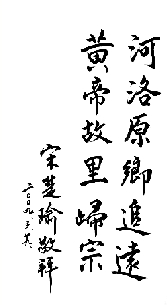 河洛原鄉追遠
黃帝故里歸宗
宋楚瑜敬拜
二〇〇九.三.廿九